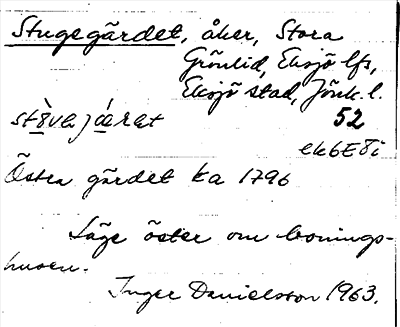 Stugegärdet, åker, Stora
Grönlid, Eksjö lfs,
Eksjö stad, Jönk. l.
52
ek6E8i
Östra gärdet ka 1796
Läge öster om bonings-
husen.
Inger Danielsson 1963.